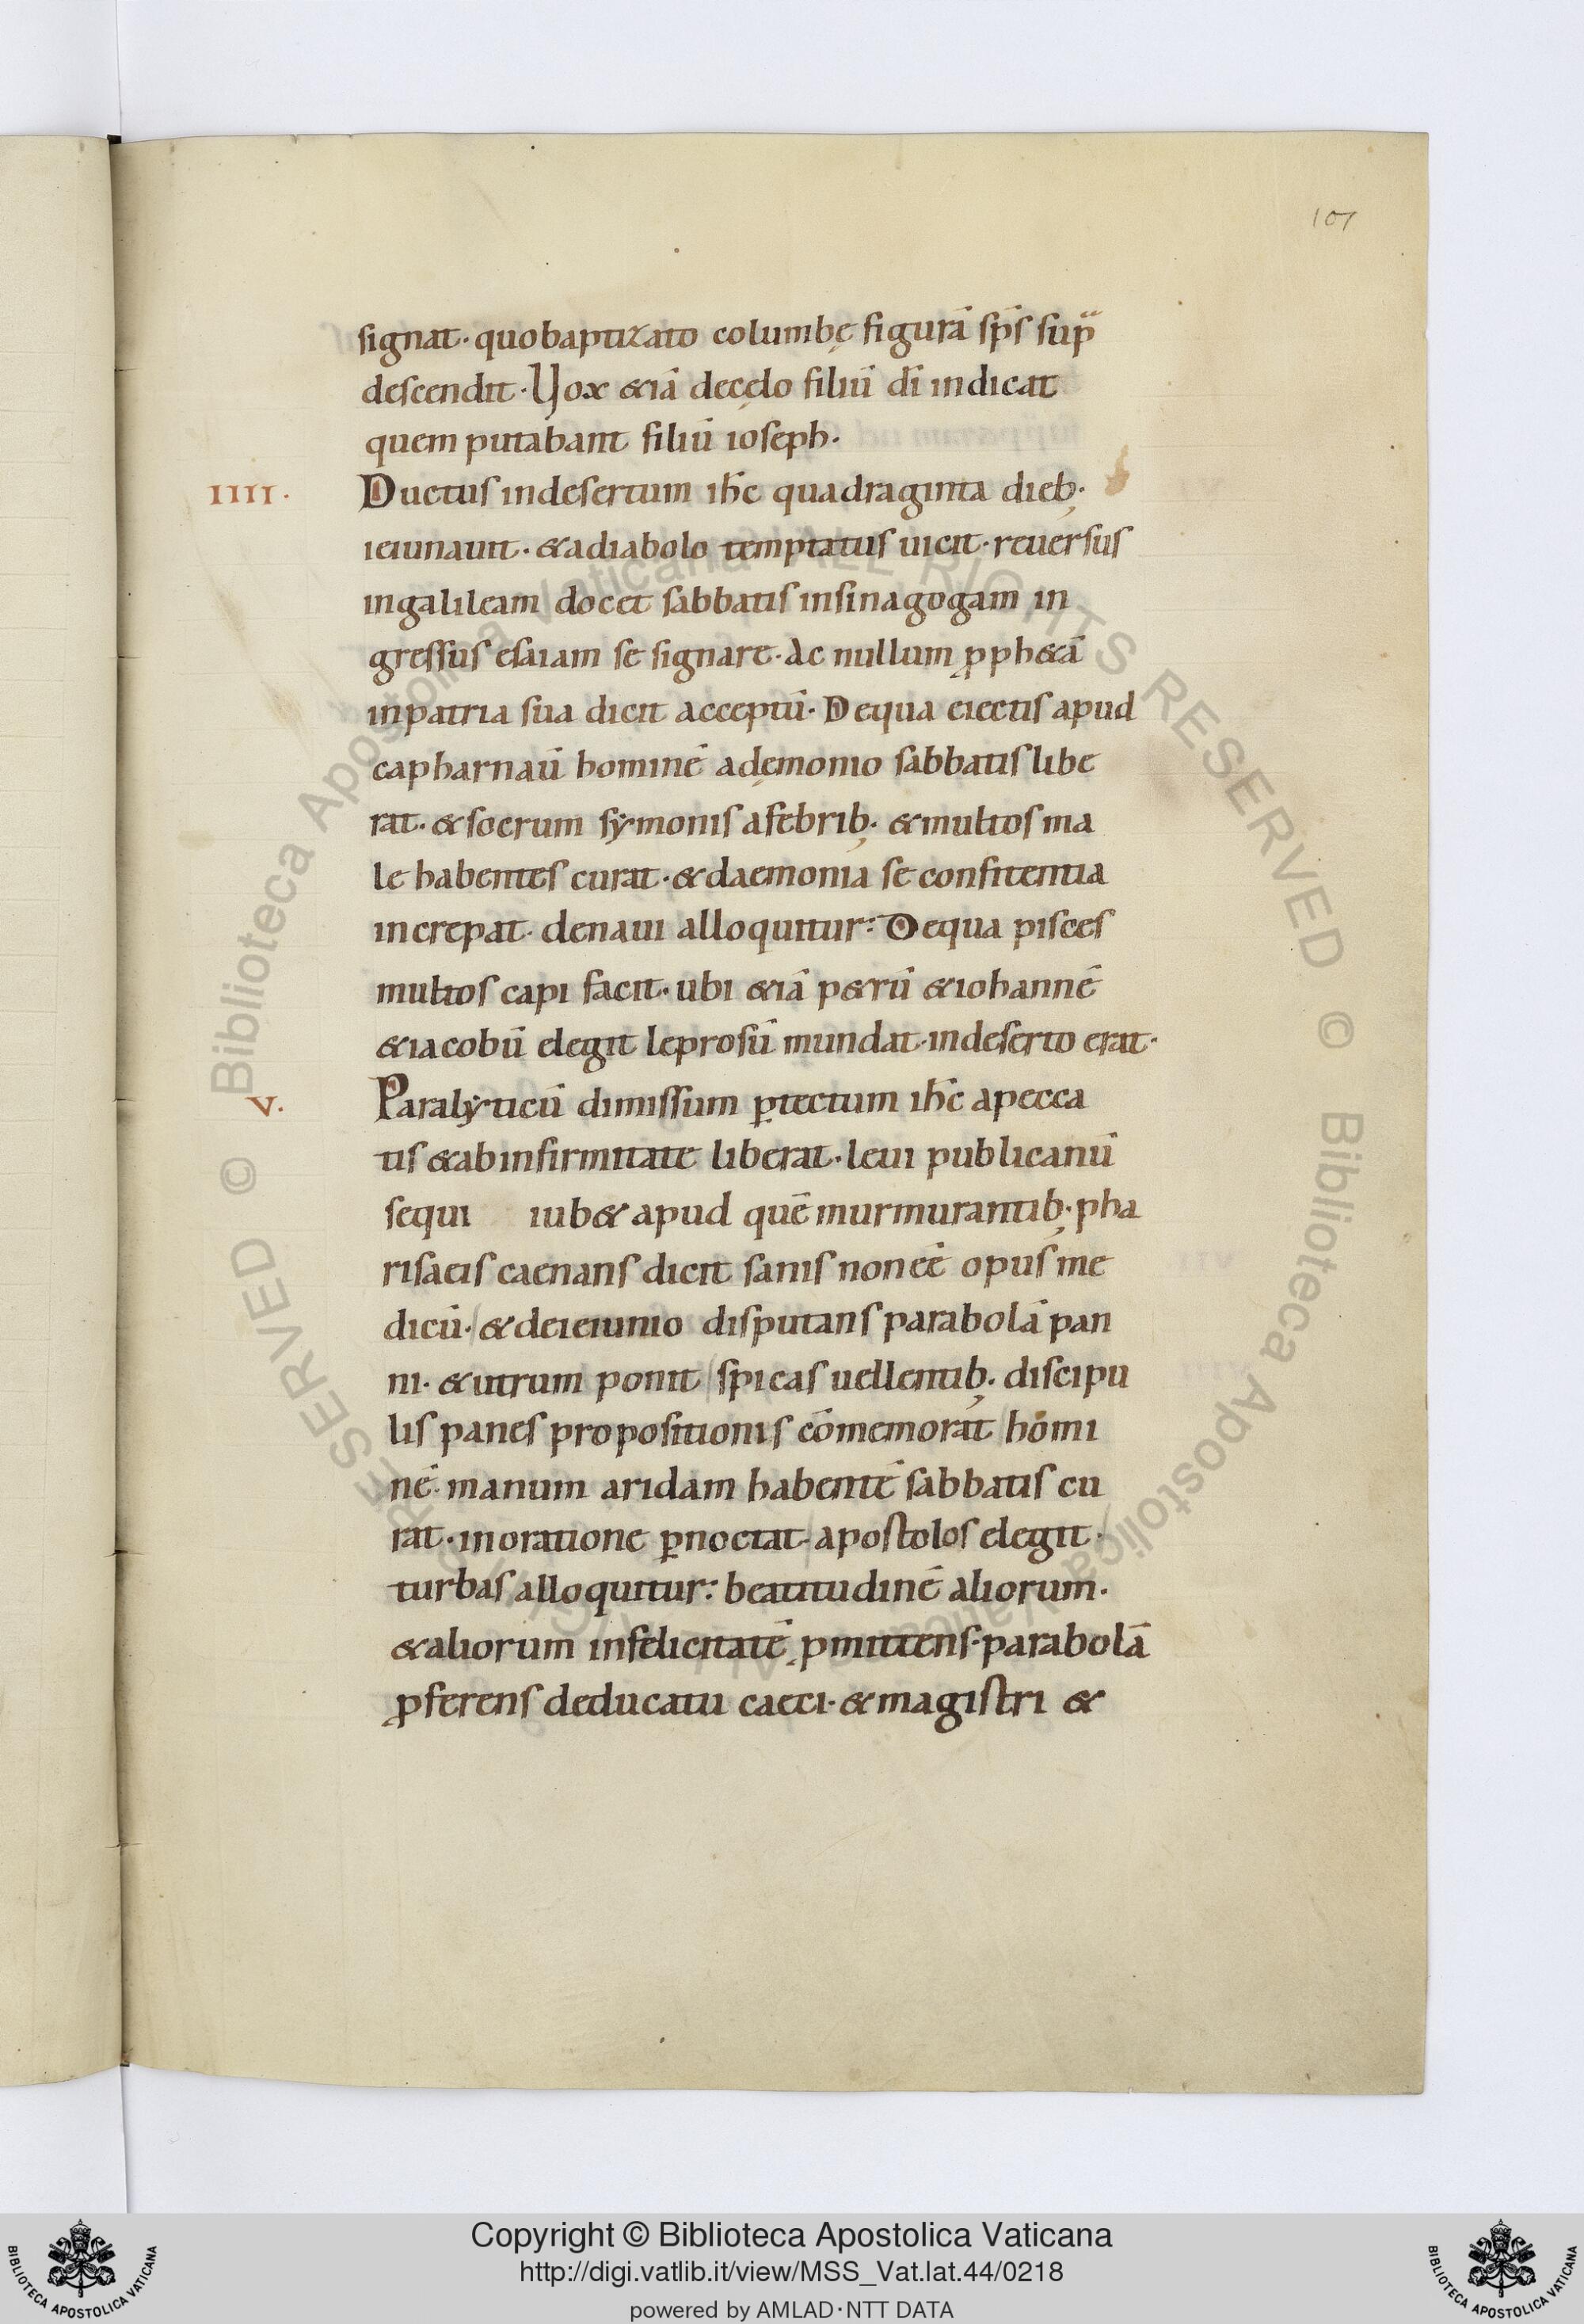 107
signat. quo baptizato columbę figurā sp̄s sup̄
descendit. Vox &iā de cęlo filiū dī indicat
quem putabant filiū ioseph.
IIII. Ductus in desertum ih̄c quadraginta dieb;
ieiunauit. & a diabolo temptatus uicit. reuersus
in galileam docet sabbatis in sinagogam in
gressus esaiam se signare. Ac nullum ꝓph&ā
in patria sua dicit acceptū. De qua eiectis apud
capharnaū hominē a dęmonio sabbatis libe
rat. & socrum sẏmonis a febrib; & multos ma
le habentes curat. & daemonia se confitentia
increpat. de naui alloquitur: De qua pisces
multos capi facit. ubi &iā p&rū & iohannē
& iacobū elegit leprosū mundat. in deserto erat.
V. Paralẏticū dimissum ꝑ tectum ih̄c a pecca
tis & ab infirmitate liberat. leui publicanū
sequi iub& apud quē murmurantib; pha
risaeis caenans dicit sanis non eē opus me
dicū. & de ieiunio disputans parabolā pan
ni. & utrum ponit spicas uellentib; discipu
lis panes propositionis cōmemorat homi
nē. manum aridam habentē sabbatis cu
rat. in oratione ꝑnoctat. apostolos elegit.
turbas alloquitur: beatitudinē aliorum.
& aliorum infelicitatē ꝓmittens. parabolā
ꝓferens de ducatu caeci. & magistri &
© Biblioteca Apostolica Vaticana ALL RIGHTS RESERVED © Biblioteca Apostolica Vaticana ALL RIGHTS RESERVED
Copyright © Biblioteca Apostolica Vaticana
http://digi.vatlib.it/view/MSS_Vat.lat.44/0218
powered by AMLAD·NTT DATA
BIBLIOTECA APOSTOLICA VATICANA
BIBLIOTECA APOSTOLICA VATICANA